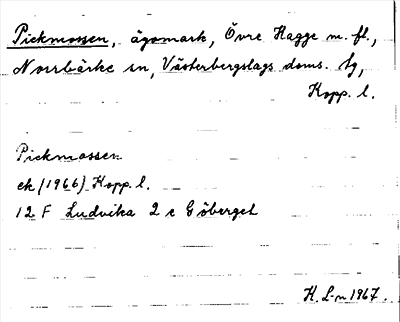 Pickmossen, ägomark, Övre Hagge m. fl.,
Norrbärke sn, Västerbergslags doms. tg,
Kopp. l.
Pickmossen
ek (1966) Kopp. l.
12 F Ludvika 2 c Göberget
H. L-n 1967.